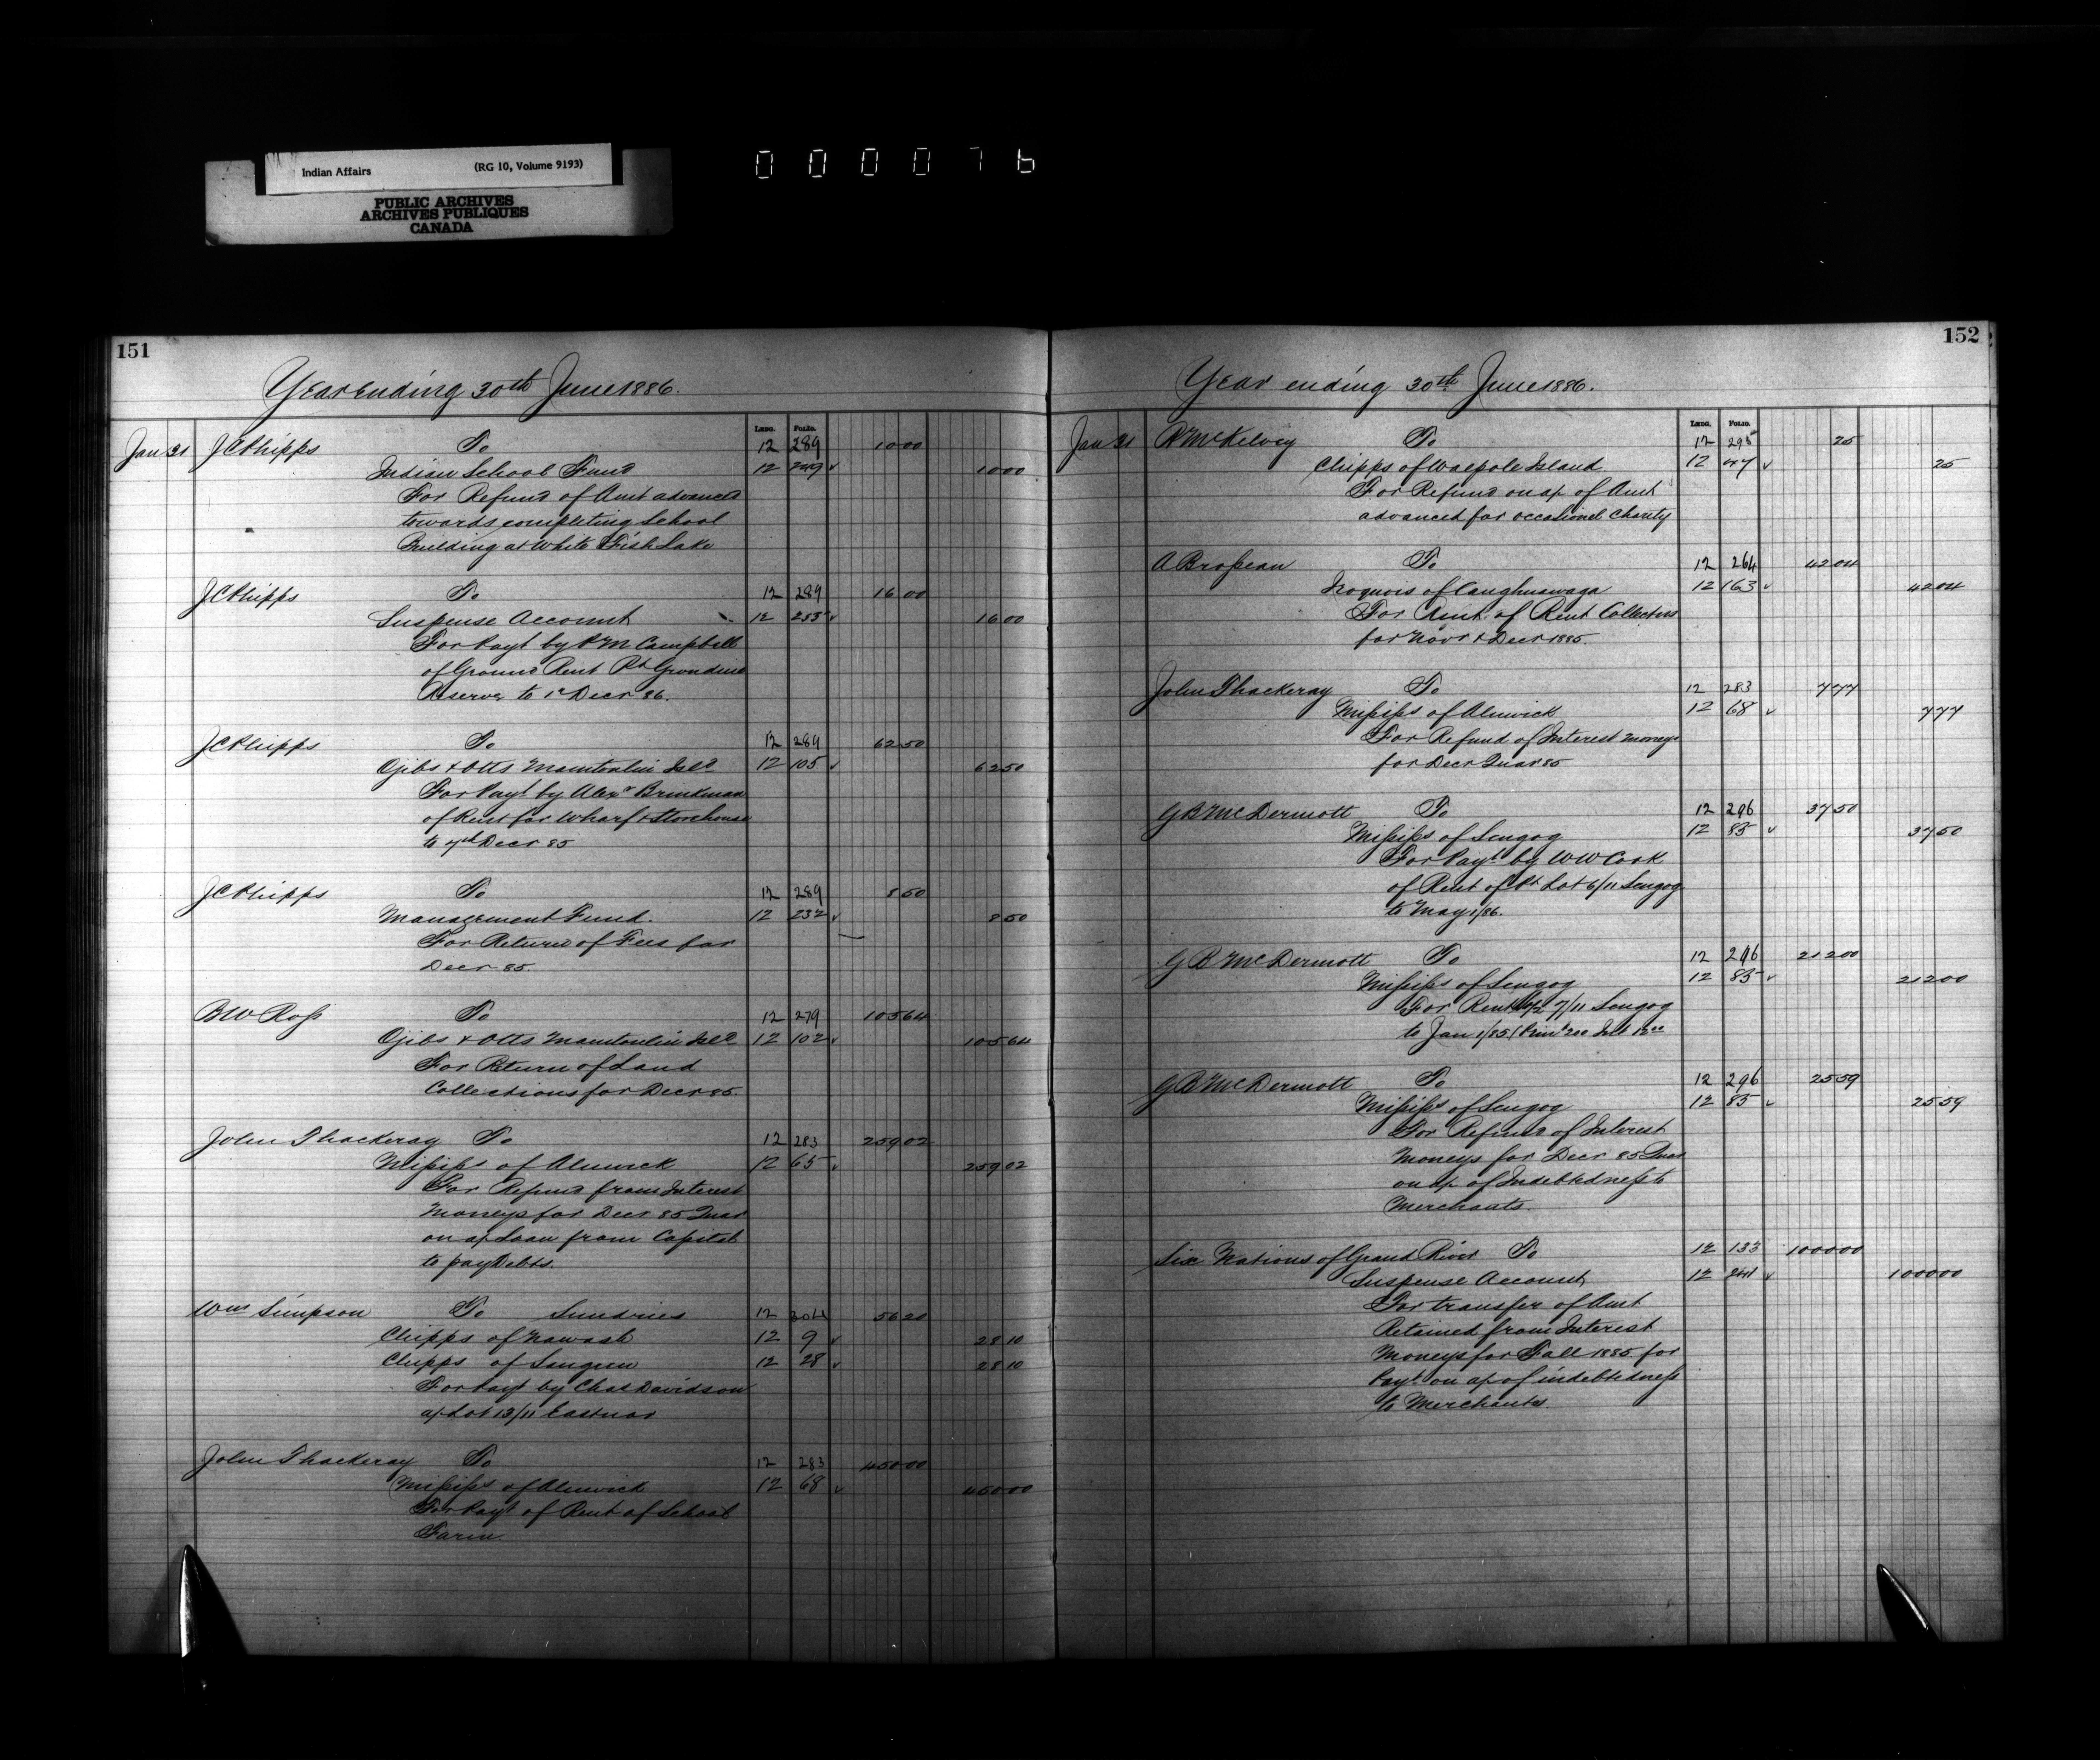 Indian Affairs (RG 10, Volume 9193)
PUBLIC ARCHIVES
ARCHIVES PUBLIQUES
CANADA
000076
151
Year ending 30th June 1886.
Ledg. Folio.
Jan 31 J C Phipps To 12 289 10 00
Indian School Fund 12 249 10 00
For Refund of Amt advanced
towards completing School
Building at White Fish Lake
J C Phipps To 12 289 16 00
Suspense Account 12 255 16 00
For Payt by P M Campbell
of Ground Rent Pt Grondine
Reserve to 1st Decr 86.
J C Phipps To 12 289 62 50
Ojibs & Otts Manitoulin Isld 12 105 62 50
For Payt by Alexr Brinkman
of Rent for Wharf & Storehouse
to 7th Decr 85
J C Phipps To 12 289 8 50
Management Fund. 12 232 8 50
For Return of Fees for
Decr 85.
B W Ross To 12 279 105 64
Ojibs & Otts Manitoulin Isld 12 102 105 64
For Return of Land
Collections for Decr 85.
John Thackeray To 12 283 259 02
Mississ of Alnwick 12 65 259 02
For Refund from Interest
Moneys for Decr 85 Quar
on a/c Loan from Capital
to pay Debts.
Wm Simpson To Sundries 12 304 56 20
Chipps of Nawash 12 9 28 10
Chipps of Saugeen 12 28 28 10
For Payt by Chas Davidson
a/c Lot 13/11 Eastnor
John Thackeray To 12 283 450 00
Mississ of Alnwick 12 68 450 00
For Payt of Rent of School
Farm.
152
Year ending 30th June 1886.
Ledg. Folio.
Jan 31 R McKelvey To 12 295 25
Chipps of Walpole Island 12 25
For Refund on a/c of Amt
advanced for occasional Charity
A Brosseau To 12 264 42 04
Iroquois of Caughnawaga 12 163 42 04
For Amt of Rent Collections
for Novr & Decr 1885.
John Thackeray To 12 283 7 77
Mississ of Alnwick 12 68 7 77
For Refund of Interest Moneys
for Decr Quar 85
G B McDermott To 12 296 37 50
Mississ of Scugog 12 85 37 50
For Payt by W W Cook
of Rent of Pt Lot 6/11 Scugog
to May 1/86.
G B McDermott To 12 296 212 00
Mississ of Scugog 12 85 212 00
For Rent 7/11 Scugog
to Jan 1/85 (Prin 200 Int 12 00
G B McDermott To 12 296 25 59
Mississ of Scugog 12 85 25 59
For Refund of Interest
Moneys for Decr 85 Quar
on a/c of Indebtedness to
Merchants.
Six Nations of Grand River To 12 133 1000 00
Suspense Account 12 1000 00
For transfer of Amt
Retained from Interest
Moneys for Fall 1885 for
Payt on a/c of indebtedness
to Merchants.